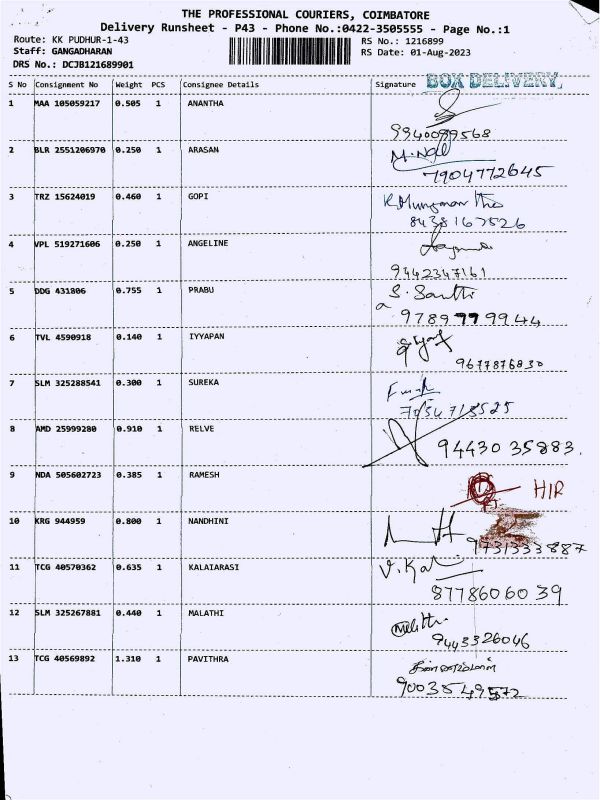 THE PROFESSIONAL COURIERS, COIMBATORE
Delivery Runsheet - P43 - Phone No.:0422-3505555 - Page No.:1
Route: KK PUDHUR-1-43 RS No.: 1216899
Staff: GANGADHARAN RS Date: 01-Aug-2023
DRS No.: DCJB121689901
S No Consignment No Weight PCS Consignee Details Signature BOX DELIVERY
1 MAA 105059217 0.505 1 ANANTHA
9940099568
2 BLR 2551206970 0.250 1 ARASAN
7904772645
3 TRZ 15624019 0.460 1 GOPI
8438167526
4 VPL 519271606 0.250 1 ANGELINE
9442347161
5 DDG 431806 0.755 1 PRABU S. Santhi
9789779944
6 TVL 4590918 0.140 1 IYYAPAN
9677876830
7 SLM 325288541 0.300 1 SUREKA
8 AMD 25999280 0.910 1 RELVE
9443035883.
9 NDA 505602723 0.385 1 RAMESH
HIR
10 KRG 944959 0.800 1 NANDHINI
9731333887
11 TCG 40570362 0.635 1 KALAIARASI V. Kal
8778606039
12 SLM 325267881 0.440 1 MALATHI
9443326046
13 TCG 40569892 1.310 1 PAVITHRA
9003549572